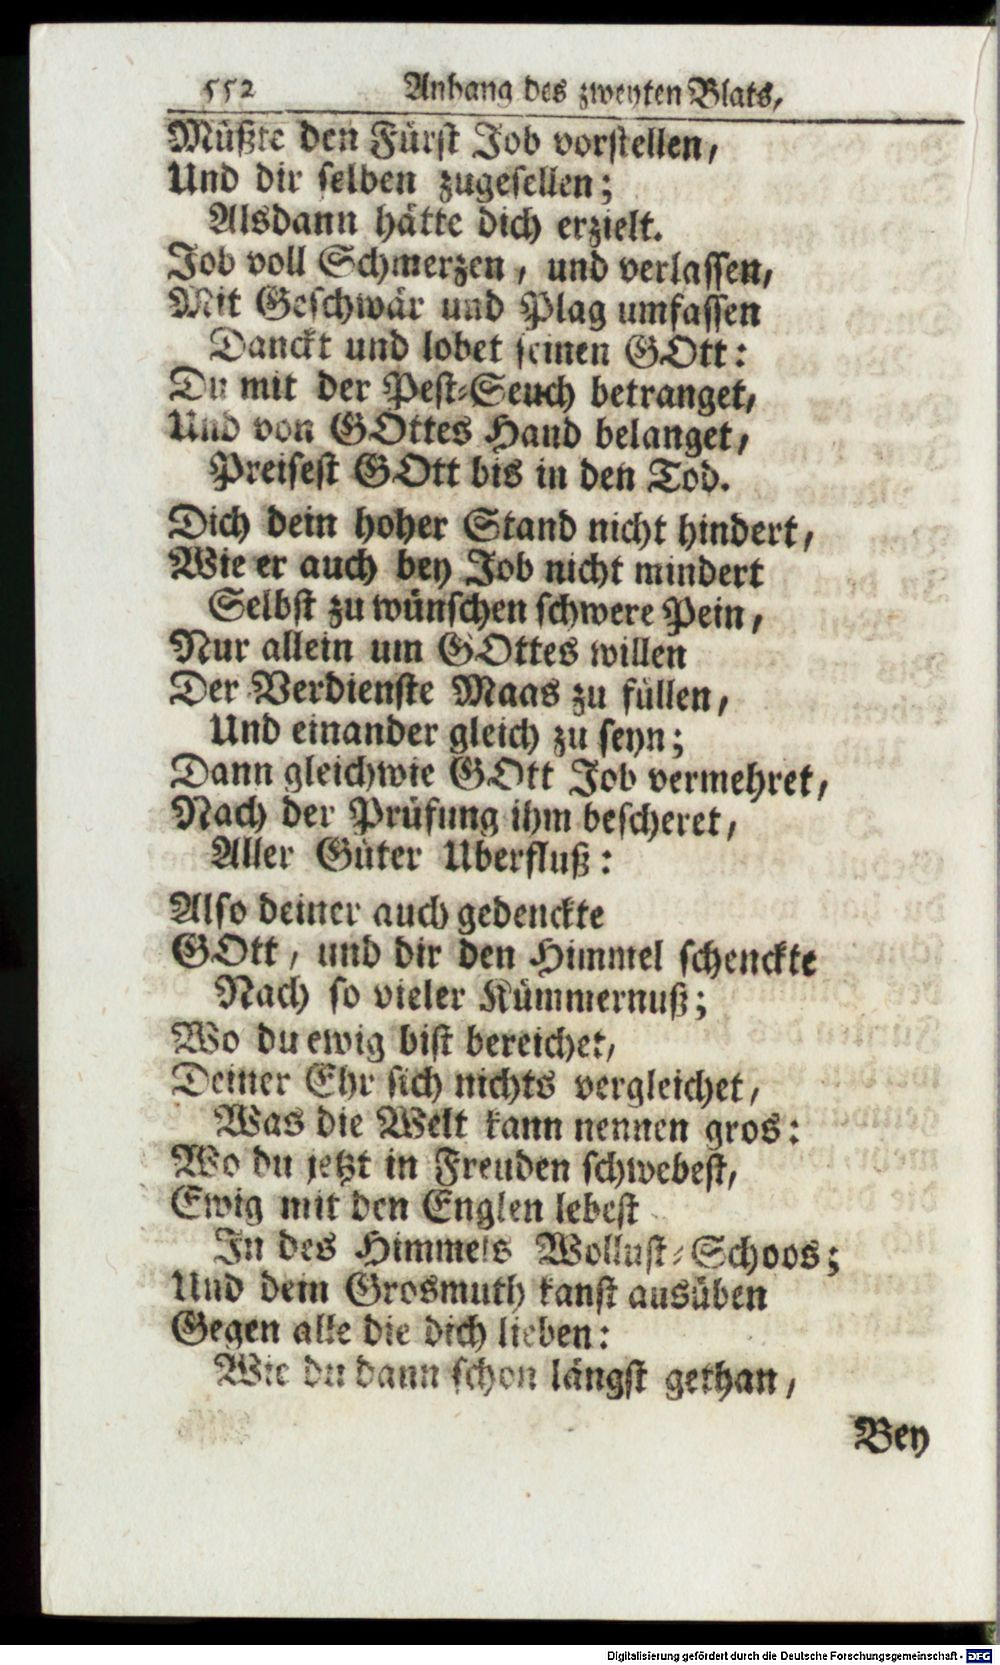 552 Anhang des zweyten Blats,
Müßte den Fürst Job vorstellen,
Und dir selben zugesellen;
Alsdann hätte dich erzielt.
Job voll Schmerzen, und verlassen,
Mit Geschwär und Plag umfassen
Danckt und lobet seinen GOtt:
Du mit der Pest-Seuch betranget,
Und von GOttes Hand belanget,
Preisest GOtt bis in den Tod.
Dich dein hoher Stand nicht hindert,
Wie er auch bey Job nicht mindert
Selbst zu wünschen schwere Pein,
Nur allein um GOttes willen
Der Verdienste Maas zu füllen,
Und einander gleich zu seyn;
Dann gleichwie GOtt Job vermehret,
Nach der Prüfung ihm bescheret,
Aller Güter Uberfluß:
Also deiner auch gedenckte
GOtt, und dir den Himmel schenckte
Nach so vieler Kümmernuß;
Wo du ewig bist bereichet,
Deiner Ehr sich nichts vergleichet,
Was die Welt kann nennen gros:
Wo du jetzt in Freuden schwebest,
Ewig mit den Englen lebest
In des Himmels Wollust-Schoos;
Und dein Grosmuth kanst ausüben
Gegen alle die dich lieben:
Wie du dann schon längst gethan,
Bey
Digitalisierung gefördert durch die Deutsche Forschungsgemeinschaft - DFG